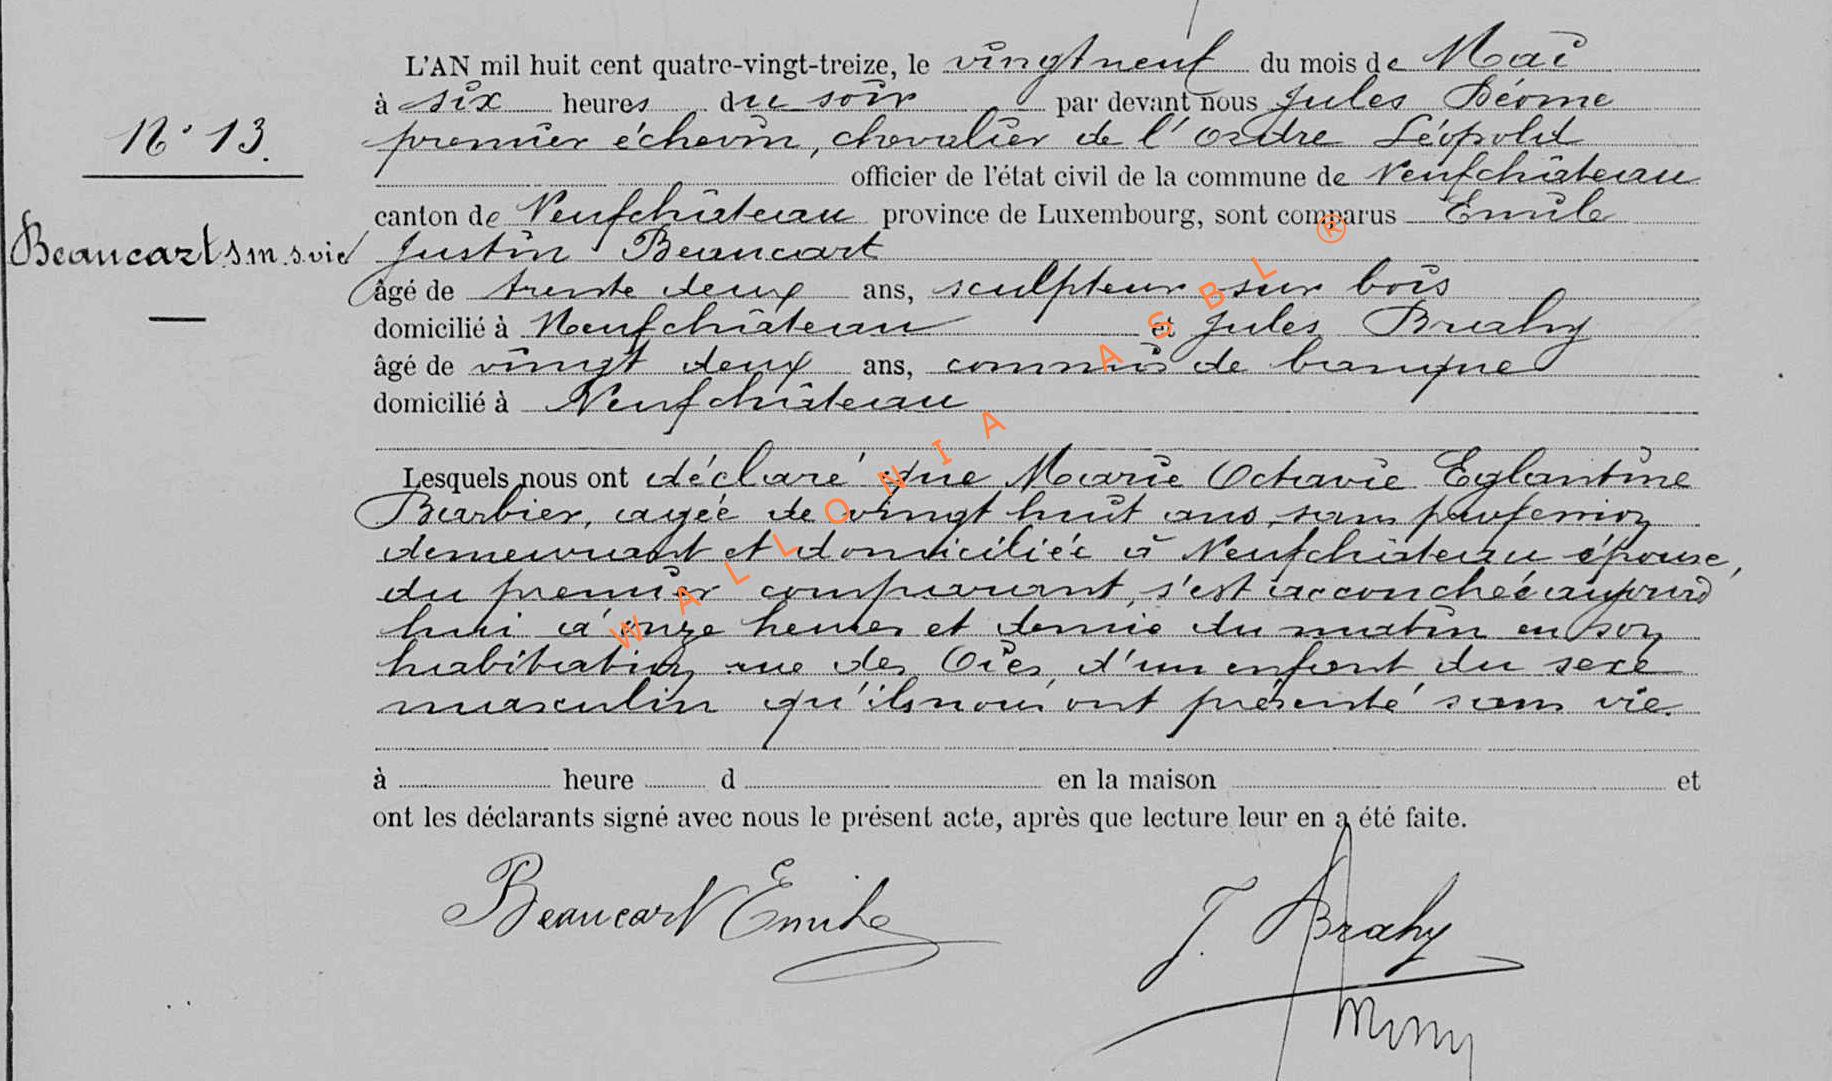 L'AN mil huit cent quatre-vingt-treize, le vingt neuf du mois de Mai
à six heures du soir par devant nous Jules Déome
N° 13.
premier échevin, chevalier de l'ordre Léopold
officier de l'état civil de la commune de Neufchâteau
canton de Neufchâteau province de Luxembourg, sont comparus Emile
Beaucart s.m. s. vie
Justin Beaucart
âgé de trente deux ans, sculpteur sur bois
domicilié à Neufchâteau et Jules Brahy
âgé de vingt deux ans, commis de banque
domicilié à Neufchâteau
Lesquels nous ont déclaré que Marie Octavie Eglantine
Barbier, agée de vingt huit ans, sans profession
demeurant et domiciliée à Neufchâteau épouse,
du premier comparant, s'est accouchée aujourd
hui à onze heures et demie du matin en son
habitation rue des Oies, d'un enfant du sexe
masculin qu'ils nous ont présenté sans vie.
à heure d en la maison et
ont les déclarants signé avec nous le présent acte, après que lecture leur en a été faite.
Beaucart Emile
J. Brahy
WALLONIA ASBL ®